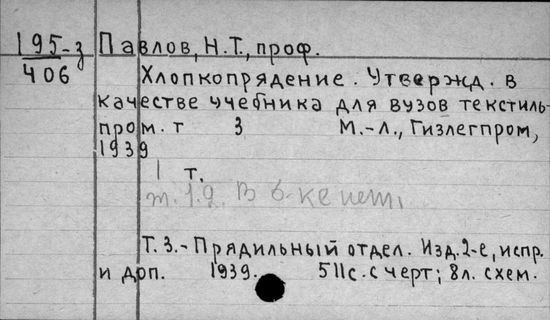 195-з
406
Павлов, Н.Т., проф.
Хлопкопрядение. Утвержд. в
качестве учебника для вузов текстиль-
пром. т 3 М.-Л., Гизлегпром,
1939
1 т.
т. 1.2. В б-ке нет.
Т. 3.- Прядильный отдел. Изд. 2-е, испр.
и доп. 1939. 511с. с черт; 8л. схем.